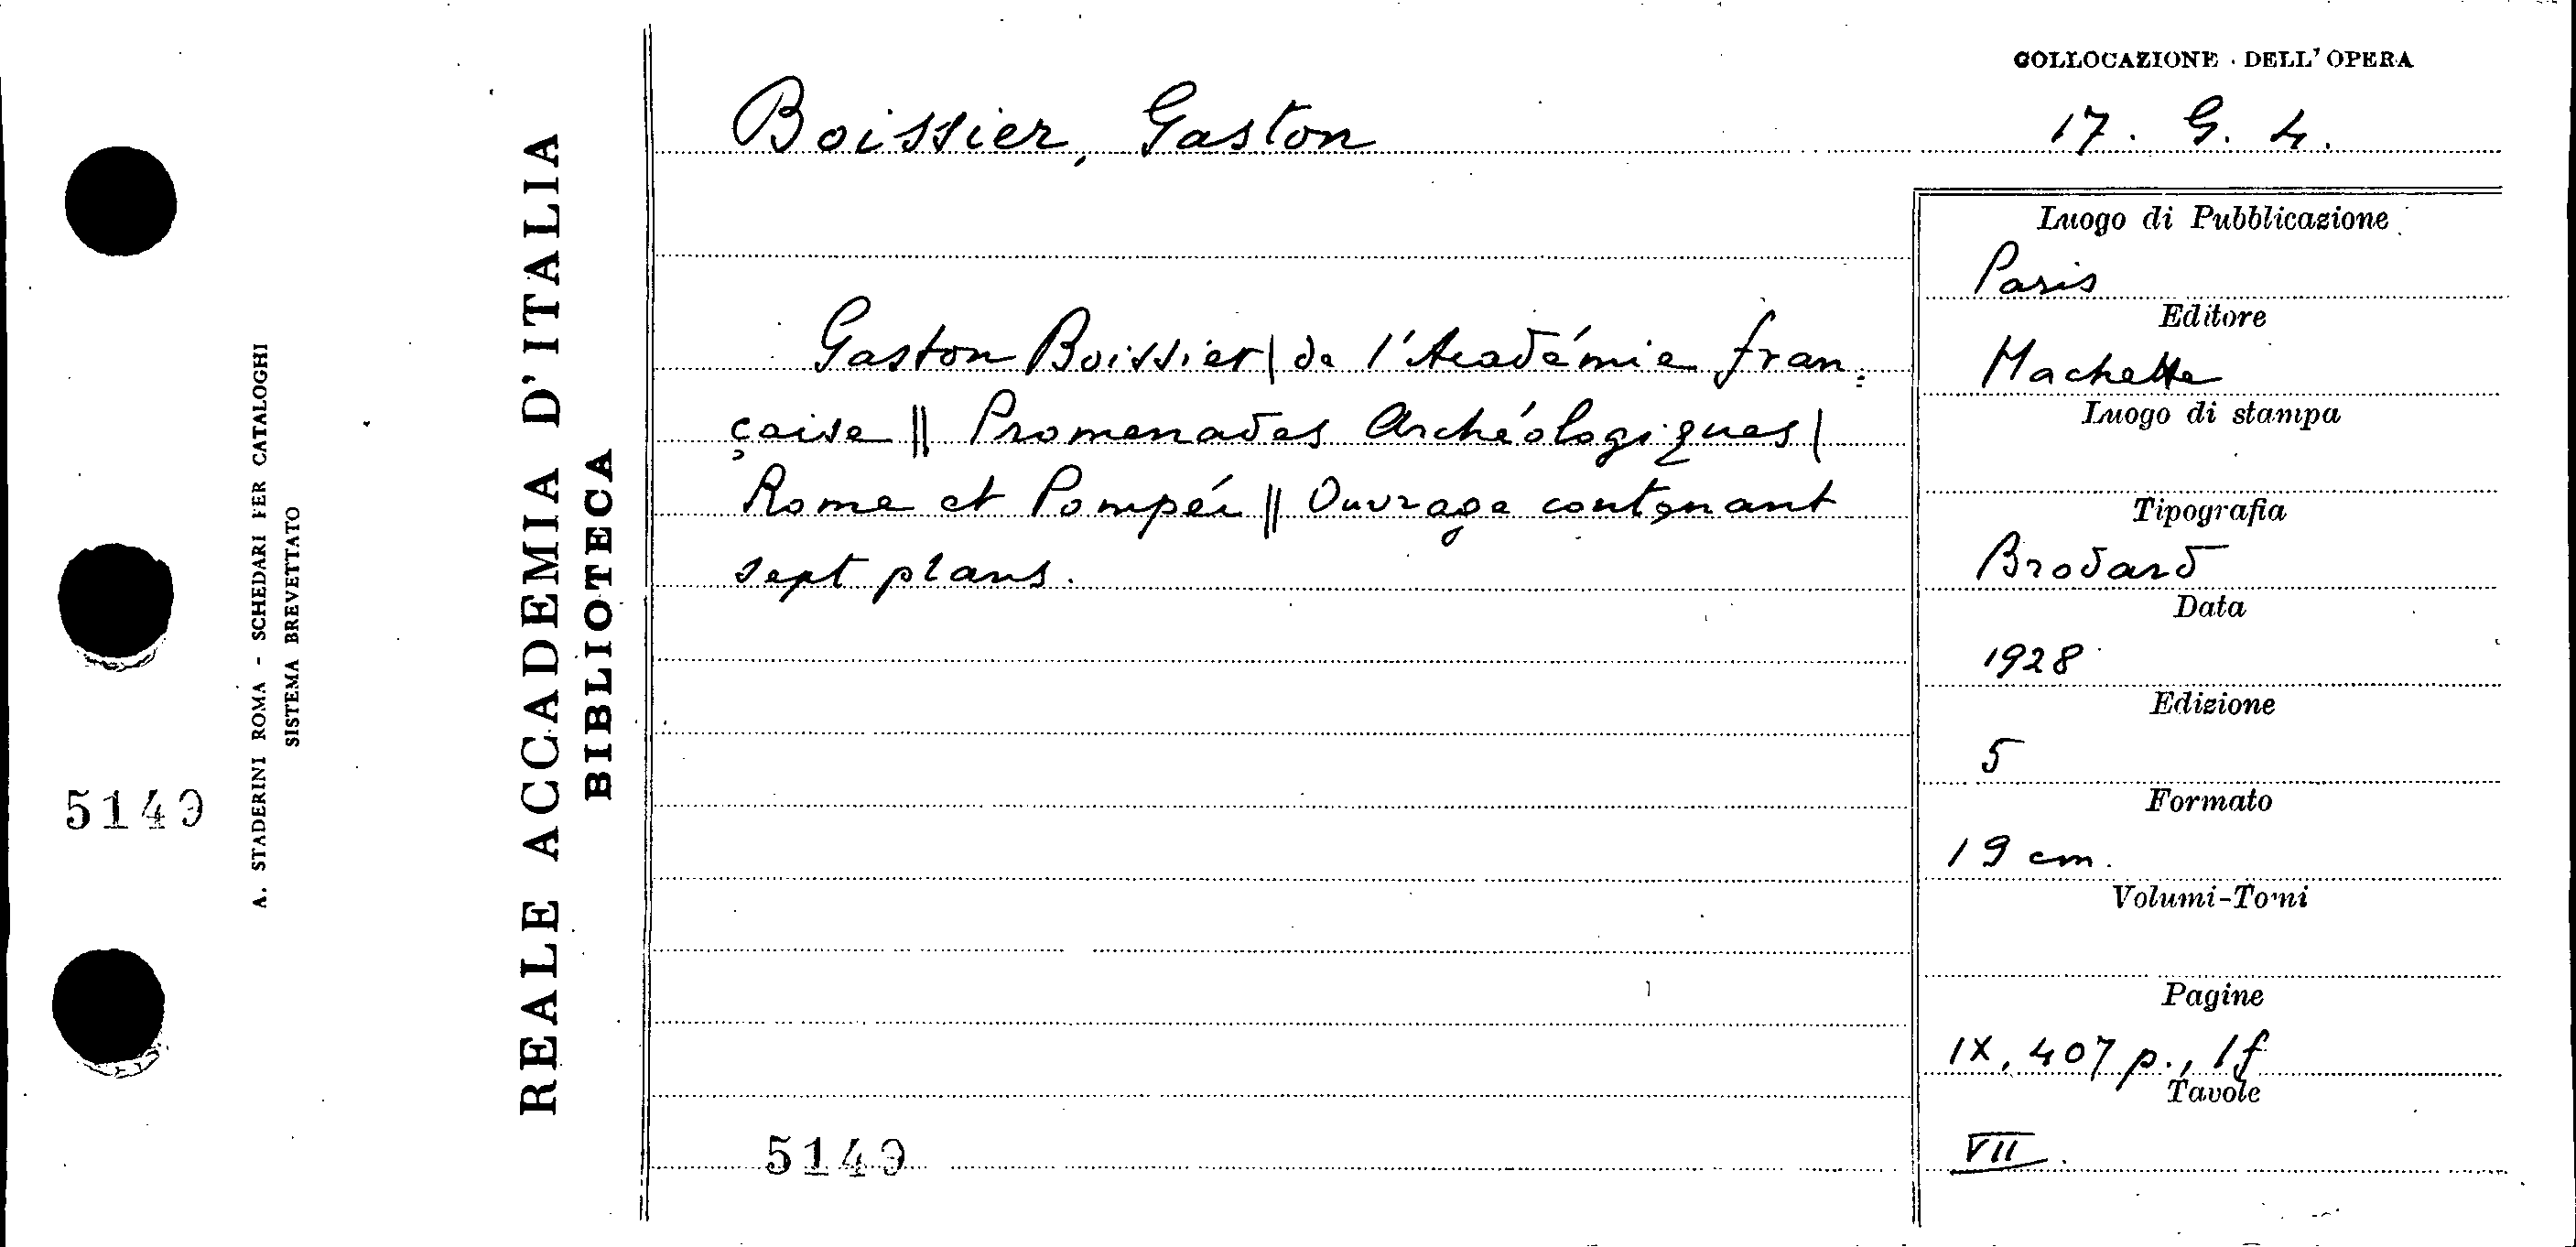 COLLOCAZIONE DELL'OPERA
Boissier, Gaston
17. G. 4.
Gaston Boissier | de l'Académie fran=
çaise || Promenades Archéologiques |
Rome et Pompéi || Ouvrage contenant
sept plans.
5149
Luogo di Pubblicazione
Paris
Editore
Hachette
Luogo di stampa
Tipografia
Brodard
Data
1928
Edizione
5
Formato
19 cm.
Volumi-Tomi
Pagine
IX, 407 p., 1 f
Tavole
VII.
REALE ACCADEMIA D'ITALIA
BIBLIOTECA
A. STADERINI ROMA - SCHEDARI PER CATALOGHI
SISTEMA BREVETTATO
5149